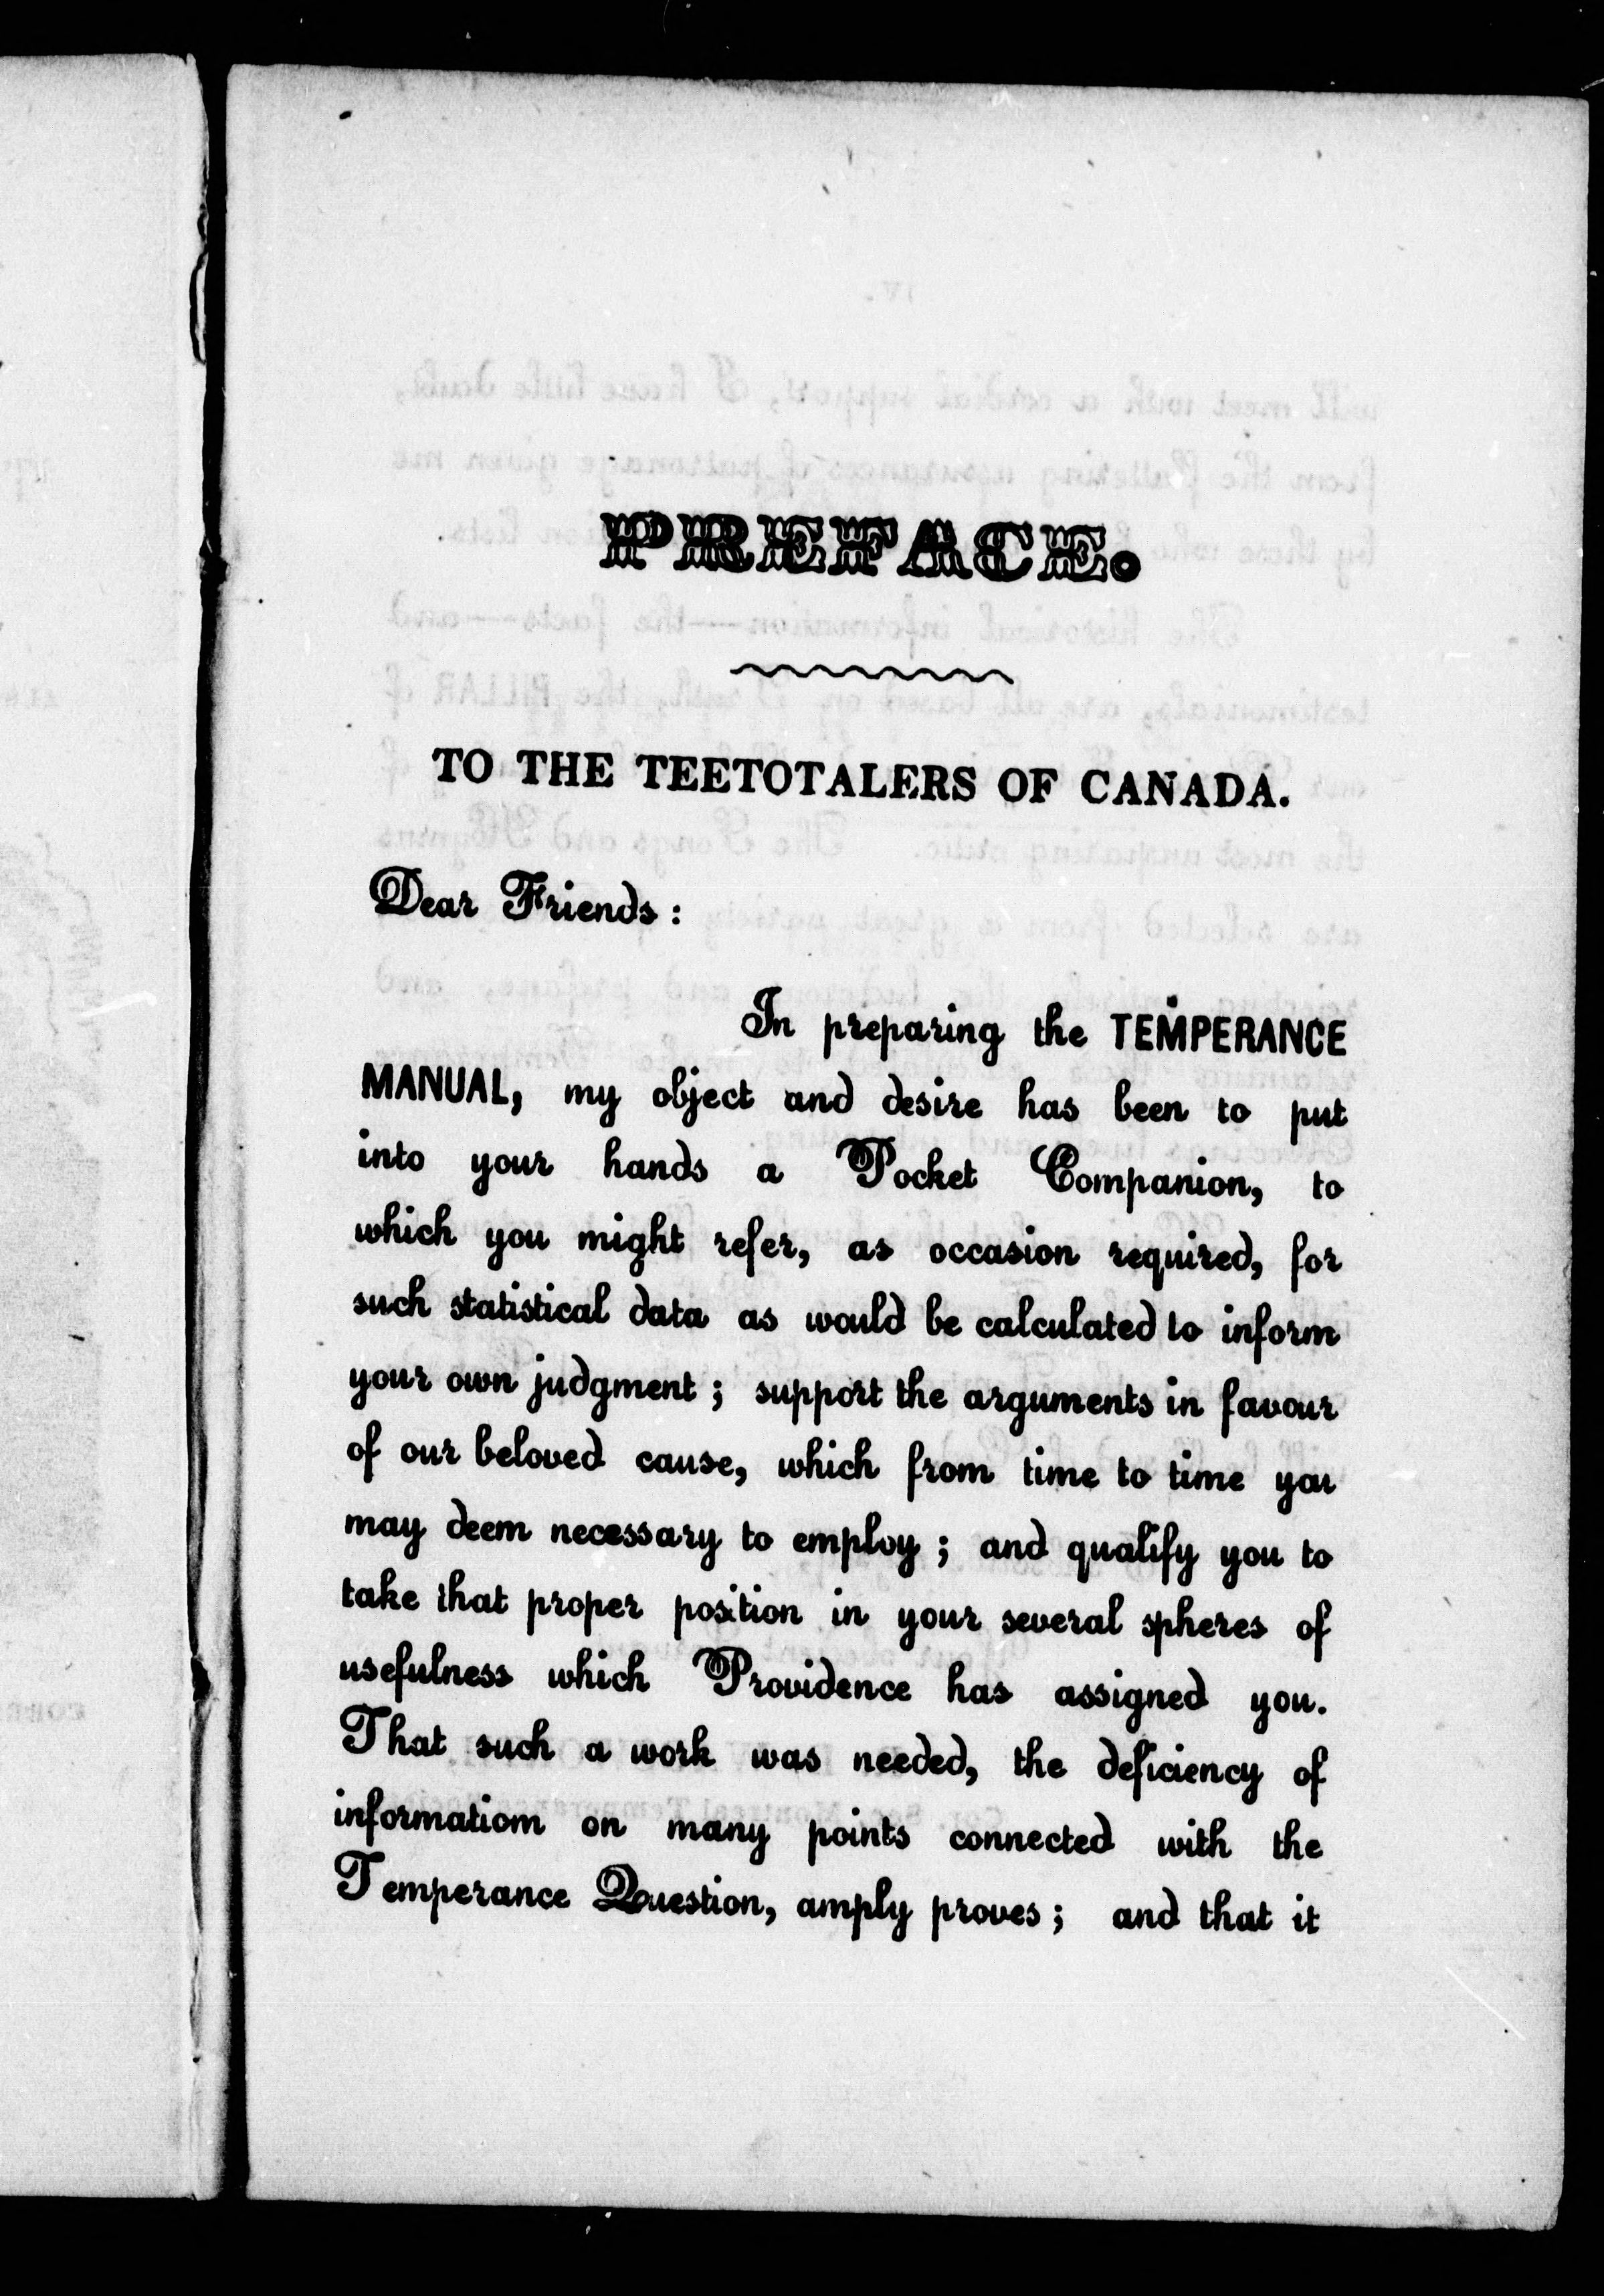 PREFACE.
TO THE TEETOTALERS OF CANADA.
Dear Friends :
In preparing the TEMPERANCE
MANUAL, my object and desire has been to put
into your hands a Pocket Companion, to
which you might refer, as occasion required, for
such statistical data as would be calculated to inform
your own judgment ; support the arguments in favour
of our beloved cause, which from time to time you
may deem necessary to employ ; and qualify you to
take that proper position in your several spheres of
usefulness which Providence has assigned you.
That such a work was needed, the deficiency of
informatiom on many points connected with the
Temperance Question, amply proves ; and that it